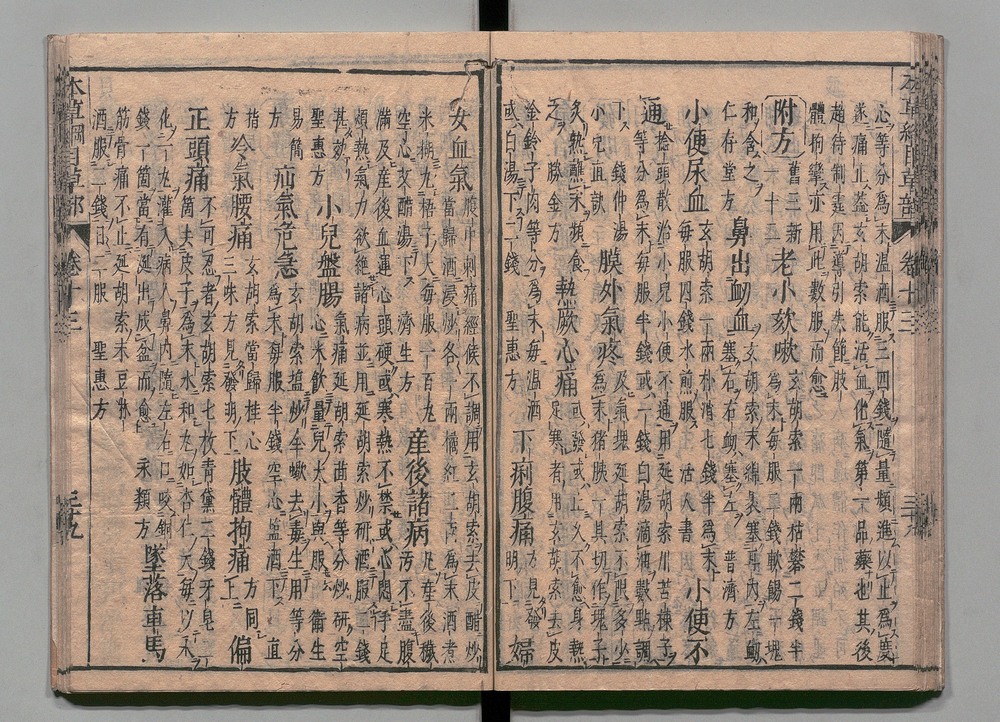 心等分爲末溫酒服二三四錢隨量頻進以止爲度
遂痛止蓋玄胡索能活血化氣第一品藥也其後
趙待制霆因導引失節肢
體拘攣亦用此數服而愈
附方
舊三新
一十二
老小欬嗽
玄胡索一兩枯礬二錢半
爲末每服二錢軟餳一塊
和含之
仁存堂方
鼻出衂血
玄胡索末綿裹塞耳內左衂
塞右右衂塞左
普濟方
小便尿血
玄胡索一兩朴消七錢半爲末
每服四錢水煎服
活人書
小便不
通
捻頭散治小兒小便不通用延胡索川苦楝子
等分爲末每服半錢或一錢白湯滴油數點調
下
錢仲陽
小兒直訣
膜外氣疼
及氣塊延胡索不限多少
爲末猪胰一具切作塊子
炙熟蘸末頻食
勝金方
熱厥心痛
或發或止久不愈身熱
足寒者用玄胡索去皮
金鈴子肉等分爲末每溫酒
或白湯下二錢
聖惠方
下痢腹痛
方見發
明下
婦
女血氣
腹中刺痛經候不調用玄胡索去皮醋炒
當歸酒浸炒各一兩橘紅二兩爲末酒煮
米糊丸梧子大每服一百丸
空心艾醋湯下
濟生方
産後諸病
凡産後穢
汚不盡腹
滿及産後血運心頭硬或寒熱不禁或心悶手足
煩熱氣力欲絶諸病並用延胡索炒研酒服二錢
甚效
聖惠方
小兒盤腸
氣痛延胡索茴香等分炒研空
心米飲量兒大小與服
衞生
易簡
方
疝氣危急
玄胡索鹽炒全蠍去毒生用等分
爲末每服半錢空心鹽酒下
直
指
方
冷氣腰痛
玄胡索當歸桂心
三味方見發明下
肢體拘痛
方同
上
偏
正頭痛
不可忍者玄胡索七枚青黛二錢牙皂二
箇去皮子爲末水和丸如杏仁大每以水
化一丸灌入病人鼻内隨左右口咬銅
錢一箇當有涎出成盆而愈
永類方
墜落車馬
筋骨痛不止延胡索末豆淋
酒服二錢日二服
聖惠方
本草綱目草部
卷十三
三九